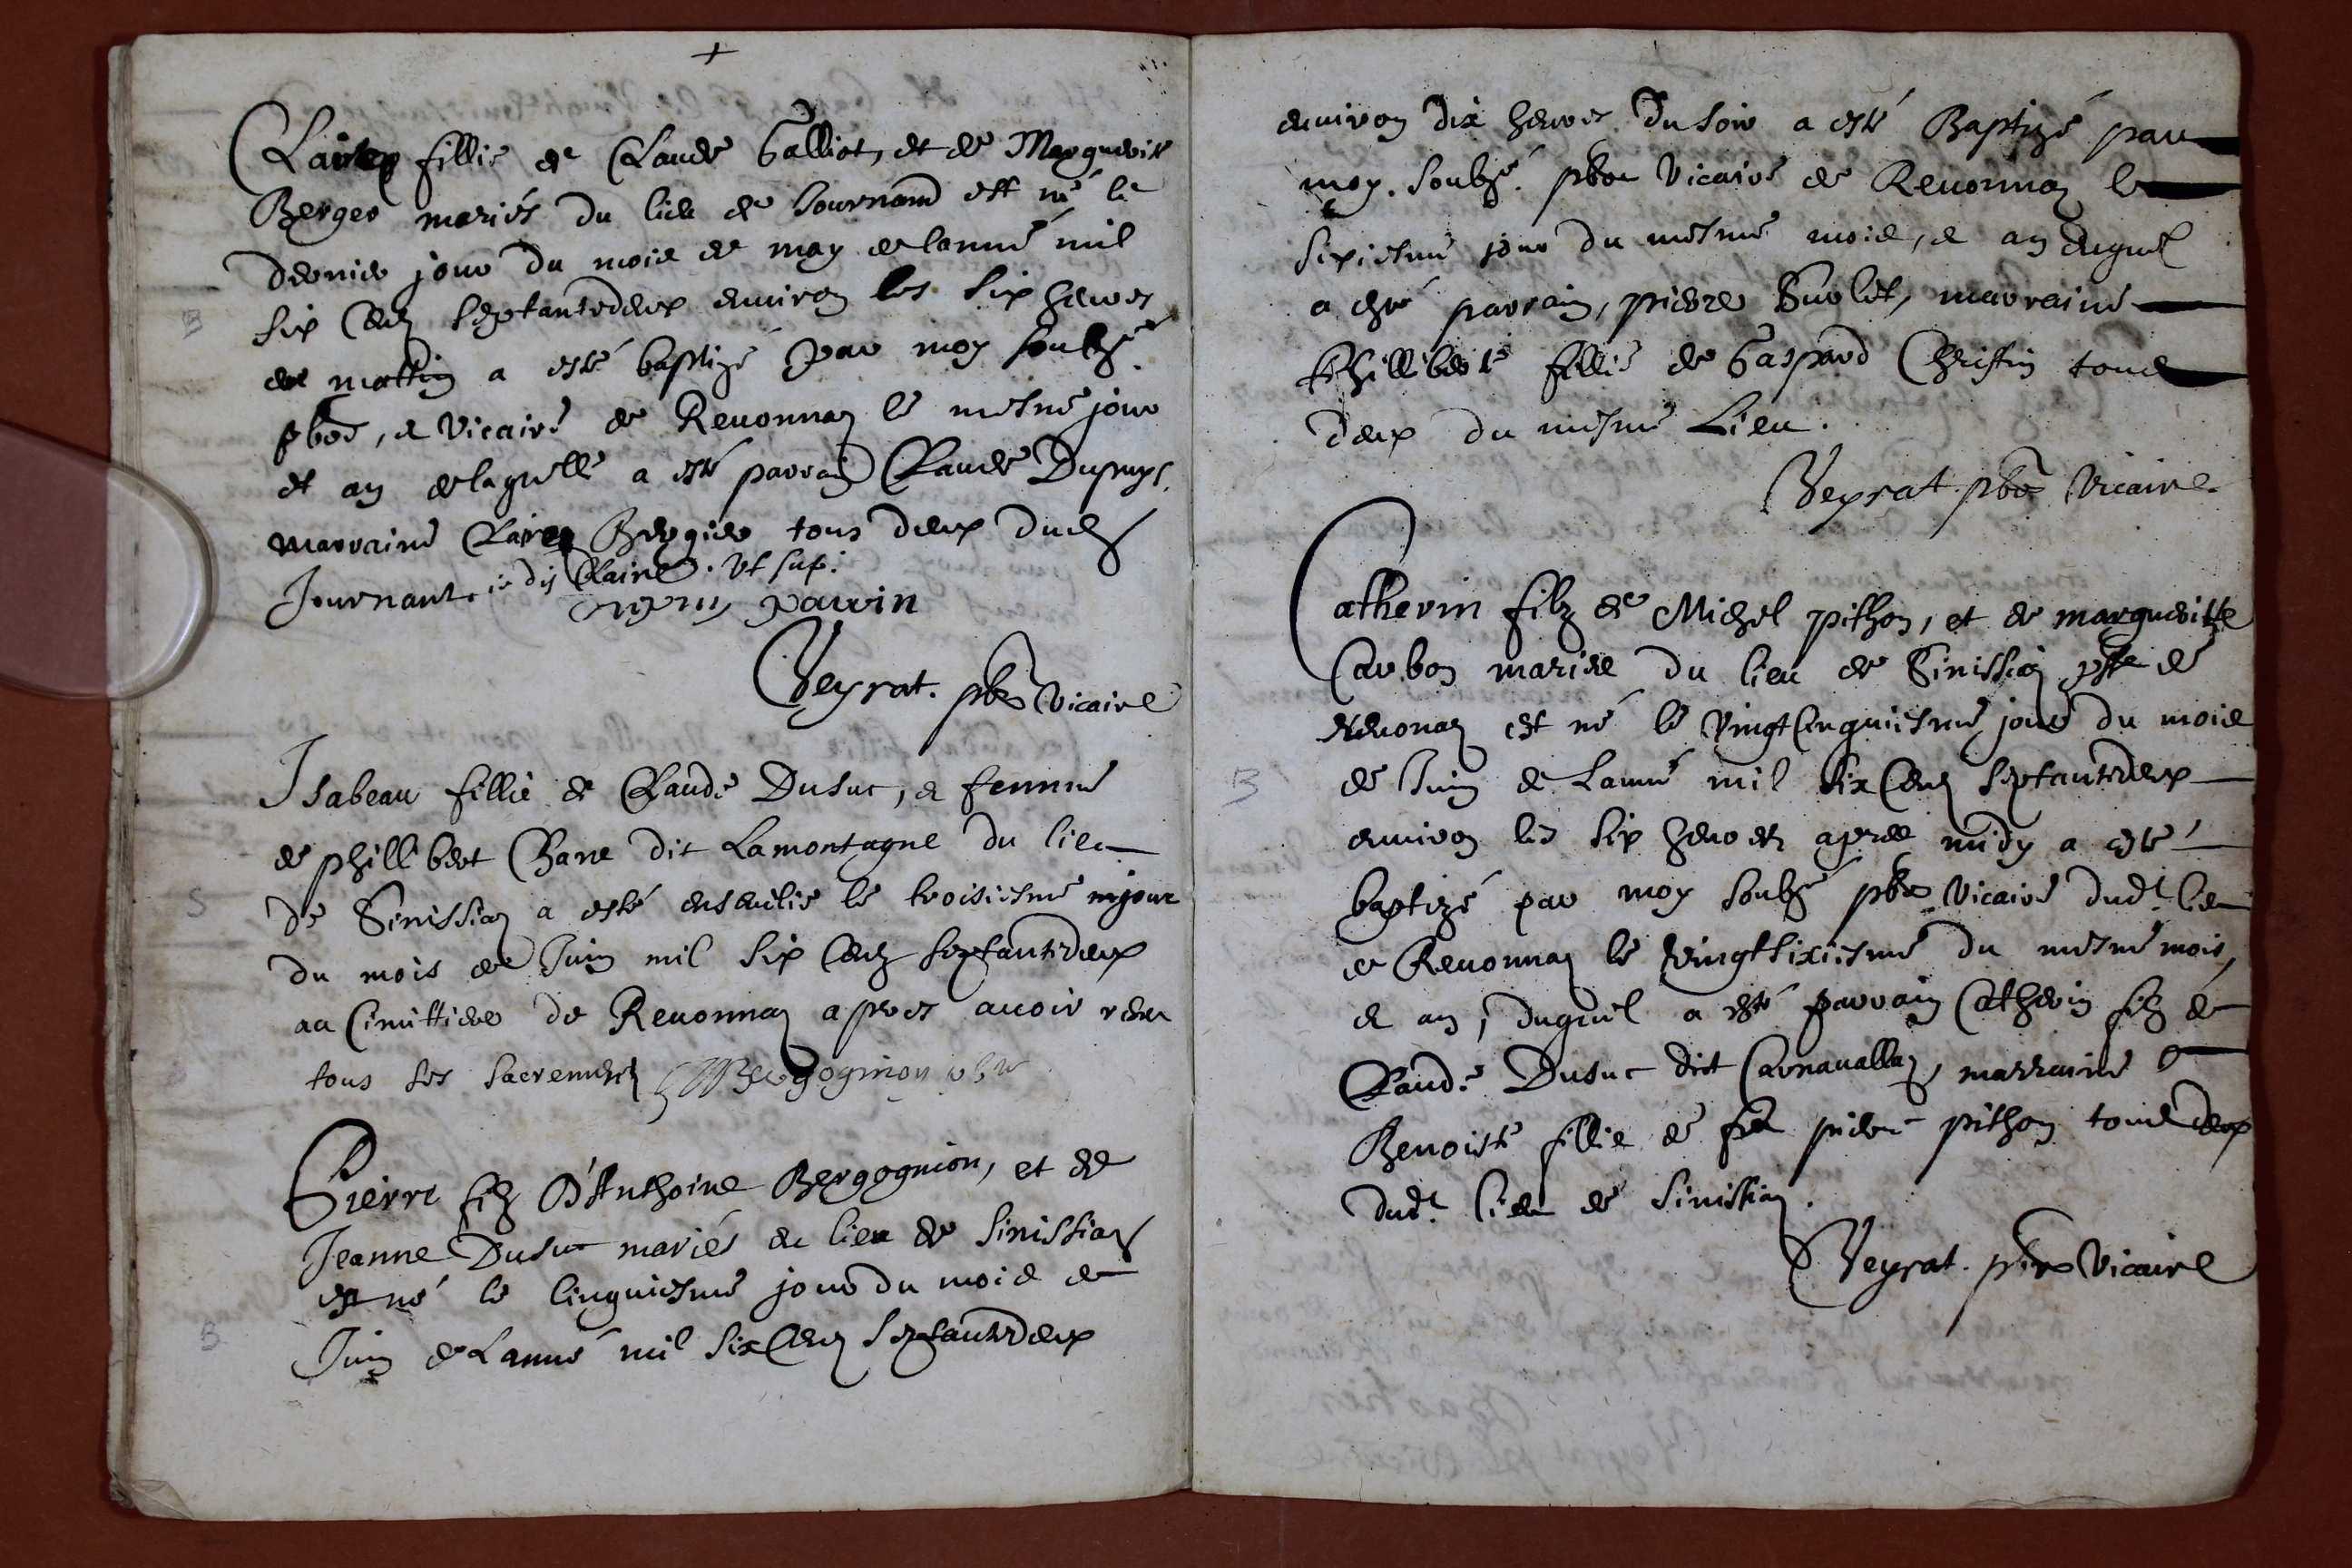 +
Claire fillie de Claude Galliot, et de Marguerite
Berger mariés du lieu de Journand est né le
dernier jour du mois de may de lanné mil
B
six cens septantedeux environ les six heures
de mattin a esté baptizé par moy soubzé
pbre, et vicaire de Reuonnaz le mesme jour
et an de laquelle a esté parrain Claude Dupuys,
marraine Claire Bergier tous deux dud
Journant. je dis Claire. Ut sup:
parrin
Veyrat. pbre vicaire
Isabeau fillie de Claude Dusuc, et femme
de phillibert Chane dit Lamontagne du lieu
S
de Sinissiaz a esté ensevelie le troisiesme jour
du mois de Juin mil six cens septantedeux
au Cimittiere de Reuonnaz apres avoir receu
tous ses sacremens Bergognion pbre
Pierre filz D'Anthoine Bergognion, et de
Jeanne Dusuc mariés du lieu de Sinissiaz
est né le cinquiesme jour du mois de
B
Juin de Lanné mil six Cens septantedeux
environ dix heures du soir a esté Baptizé par
moy. soubzé. pbre vicaire de Reuonnaz le
sixiesme jour du mesme mois, et an duquel
a esté parrain, pierre marraine
phillibert fillie de Gaspard Christin tous
deux du mesme Lieu.
Veyrat. pbre vicaire
Catherin filz de Michel pithon, et de marguerite
Carbon mariés du lieu de Sinissiaz psse de
Reuonaz est né le vingtcinquiesme jour du mois
B
de Juin de Lanné mil six Cens septantedeux
environ les six heures apres midy a esté
baptizé par moy soubzé pbre vicaire dudt lieu
de Reuonnaz le vingtsixiesme du mesme mois,
et an, duquel a esté parrain Catherin filz de
Claude Dusuc dit Carnavallaz, marraine
Benoiste fillie de feu pierre pithon tous deux
dudt lieu de Sinissiaz.
Veyrat. pbre vicaire